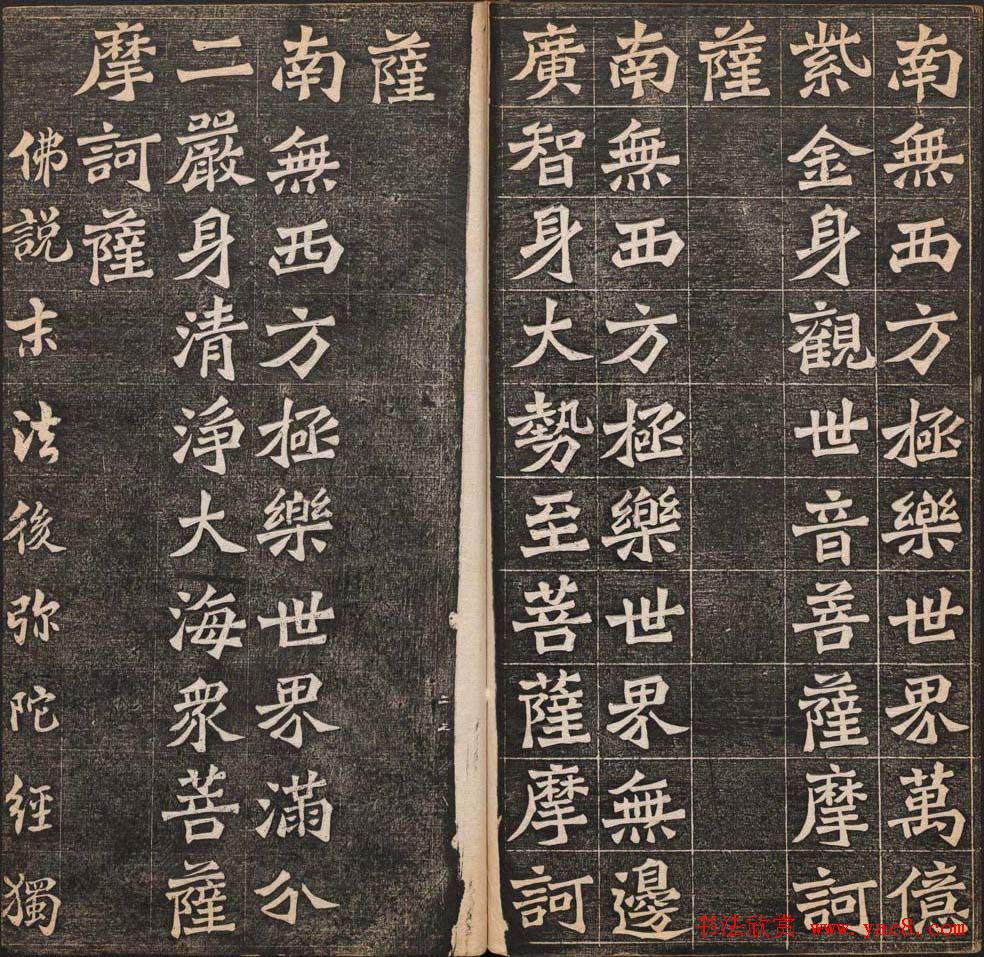 南無西方極樂世界萬億
紫金身觀世音菩薩摩訶
薩
南無西方極樂世界無邊
廣智身大勢至菩薩摩訶
薩
南無西方極樂世界滿分
二嚴身清淨大海衆菩薩
摩訶薩
佛說末法後弥陀經獨
书法欣赏 www.yac8.com